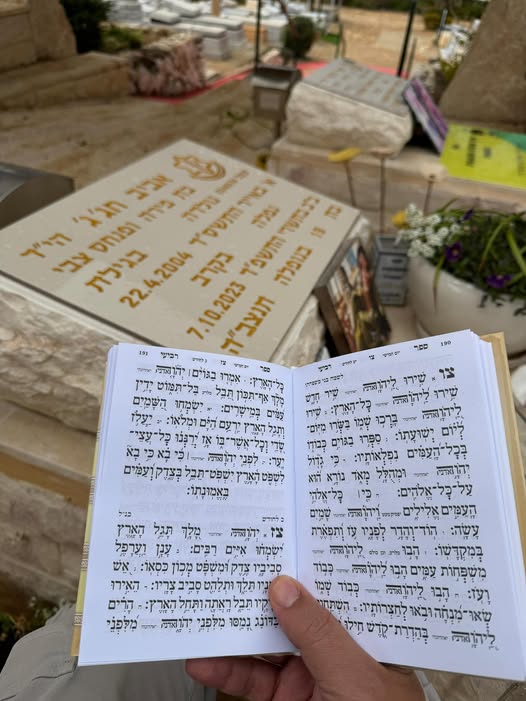 אביב חג'ג' הי"ד
נולדה בגילת
א' באייר התשס"ד 22.4.2004
נפלה בקרב
כ"ב בתשרי התשפ"ד 7.10.2023
בת 19 בנופלה תנצב"ה
ספר צו 190
צו שִׁירוּ לַיהוָה שִׁיר חָדָשׁ
שִׁירוּ לַיהוָה כָּל־הָאָרֶץ: שִׁירוּ
לַיהוָה בָּרְכוּ שְׁמוֹ בַּשְּׂרוּ מִיּוֹם־
לְיוֹם יְשׁוּעָתוֹ: סַפְּרוּ בַגּוֹיִם כְּבוֹדוֹ
בְּכָל־הָעַמִּים נִפְלְאוֹתָיו: כִּי גָדוֹל
יְהוָה וּמְהֻלָּל מְאֹד נוֹרָא הוּא
עַל־כָּל־אֱלֹהִים: כִּי כָּל־אֱלֹהֵי
הָעַמִּים אֱלִילִים וַיהוָה שָׁמַיִם
עָשָׂה: הוֹד־וְהָדָר לְפָנָיו עֹז וְתִפְאֶרֶת
בְּמִקְדָּשׁוֹ: הָבוּ לַיהוָה
מִשְׁפְּחוֹת עַמִּים הָבוּ לַיהוָה כָּבוֹד
וָעֹז: הָבוּ לַיהוָה כְּבוֹד שְׁמוֹ
שְׂאוּ־מִנְחָה וּבֹאוּ לְחַצְרוֹתָיו: הִשְׁתַּחֲווּ
לַיהוָה בְּהַדְרַת־קֹדֶשׁ חִילוּ
191 רביעי צו ספר
כָּל־הָאָרֶץ: אִמְרוּ בַגּוֹיִם יְהוָה
מָלָךְ אַף־תִּכּוֹן תֵּבֵל בַּל־תִּמּוֹט יָדִין
עַמִּים בְּמֵישָׁרִים: יִשְׂמְחוּ הַשָּׁמַיִם
וְתָגֵל הָאָרֶץ יִרְעַם הַיָּם וּמְלֹאוֹ: יַעֲלֹז
שָׂדַי וְכָל־אֲשֶׁר־בּוֹ אָז יְרַנְּנוּ כָּל־עֲצֵי־
יָעַר: לִפְנֵי יְהוָה כִּי בָא כִּי בָא
לִשְׁפֹּט הָאָרֶץ יִשְׁפֹּט־תֵּבֵל בְּצֶדֶק וְעַמִּים
בֶּאֱמוּנָתוֹ:
צז יְהוָה מָלָךְ תָּגֵל הָאָרֶץ
יִשְׂמְחוּ אִיִּים רַבִּים: עָנָן וַעֲרָפֶל
סְבִיבָיו צֶדֶק וּמִשְׁפָּט מְכוֹן כִּסְאוֹ: אֵשׁ
לְפָנָיו תֵּלֵךְ וּתְלַהֵט סָבִיב צָרָיו: הֵאִירוּ
בְרָקָיו תֵּבֵל רָאֲתָה וַתָּחֵל הָאָרֶץ: הָרִים
כַּדּוֹנַג נָמַסּוּ מִלִּפְנֵי יְהוָה מִלִּפְנֵי